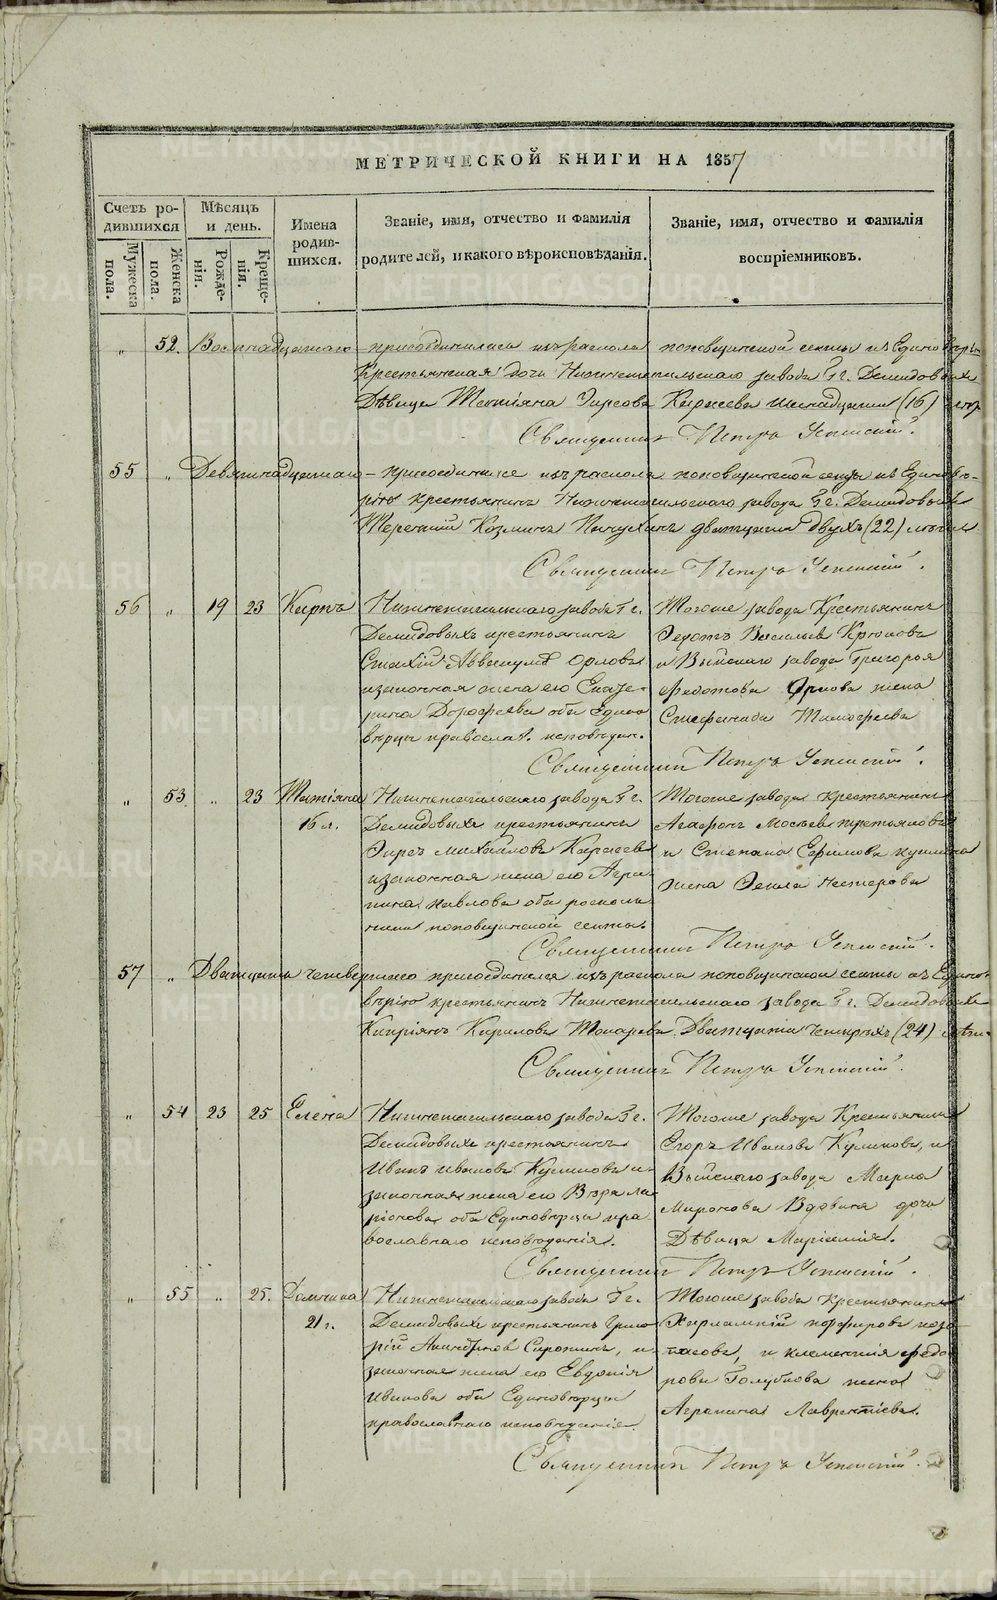 МЕТРИЧЕСКОЙ КНИГИ НА 1857
Счетъ ро-
дившихся
Мѣсяцъ
и день.
Имена
родив-
шихся.
Званіе, имя, отчество и фамилія
родителей, и какого вѣроисповѣданія.
Званіе, имя, отчество и фамилія
воспріемниковъ.
Мужеска
пола.
Женска
пола.
Рожде-
нія.
Креще-
нія.
„ 52. Восемнадцатаго – присоединилась изъ раскола поповщинской секты къ
Крестьянская дочь Нижнетагильскаго завода Гг. Демидовыхъ
Дѣвица Татіяна Киргеева (16)
Священникъ Петръ Успенскій.
55 „ Девятнадцатаго – присоединился изъ раскола поповщинской секты къ Единовѣ-
рію крестьянинъ Нижнетагильскаго завода Гг. Демидовыхъ
Терентій Козминъ двадцати двухъ (22) лѣтъ
Священникъ Петръ Успенскій.
56 „ 19 23 Кирпъ
Нижнетагильскаго завода Гг.
Демидовыхъ крестьянинъ
Орловъ
изаконная жена его Екате-
рина Дорофеева оба Едино
вѣрцы православ. исповѣдан.
Тогоже завода Крестьянинъ
Федотъ Васильев Крюковъ
и Выйскаго завода Григорья
Федотова Орлова жена
Стефанида Тимофеева
Священникъ Петръ Успенскій.
„ 53 „ 23 Татіяна
16 л.
Нижнетагильскаго завода Гг.
Демидовыхъ крестьянинъ
Михайловъ Киргеевъ
изаконная жена его Агри-
пина Павлова оба расколь
ники поповщинской секты.
Тогоже завода крестьянинъ
Агафонъ Третьяковъ
и Степана Ефимова
жена Фекла Нестерова
Священникъ Петръ Успенскій.
57 „ Двадцать четвертаго присоединился изъ раскола поповщинской секты къ Едино-
вѣрію крестьянинъ Нижнетагильскаго завода Гг. Демидовыхъ
Кипріянъ Кириловъ Токарева Двадцати четырехъ (24) лѣтъ
Священникъ Петръ Успенскій.
„ 54 23 25 Елена
Нижнетагильскаго завода Гг.
Демидовыхъ крестьянинъ
Иванъ Ивановъ Куликовъ и-
законная жена его Вѣра Ла
ріонова оба Единовѣрцы пра
вославнаго исповѣданія.
Тогоже завода Крестьянинъ
Егоръ Ивановъ Куликовъ, и
Выйскаго завода
Миронова Вдовина дочь
Дѣвица
Священникъ Петръ Успенскій.
„ 55 „ 25. Домнина
21 г.
Нижнетагильскаго завода Гг.
Демидовыхъ крестьянинъ Григо
рій Сиротинъ, и-
законная жена его Евдокія
Иванова оба Единовѣрцы
православнаго исповѣданія
Тогоже завода Крестьянинъ
Харлампій Порфировъ
и Климентія Федо
рова Голубкова жена
Агрипина Лаврентіева.
Священникъ Петръ Успенскій.
METRIKI.GASO-URAL.RU